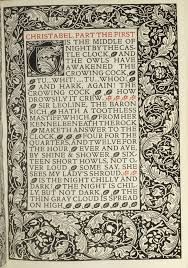 CHRISTABEL. PART THE FIRST
'TIS THE MIDDLE OF
NIGHT BY THE CAS-
TLE CLOCK, AND
THE OWLS HAVE
AWAKENED THE
CROWING COCK,
TU-WHIT! TU-WHOO!
AND HARK, AGAIN! THE
CROWING COCK, HOW
DROWSILY IT CREW.
SIR LEOLINE, THE BARON
RICH, HATH A TOOTHLESS
MASTIFF WHICH FROM HER
KENNEL BENEATH THE ROCK
MAKETH ANSWER TO THE
CLOCK, FOUR FOR THE
QUARTERS, AND TWELVE FOR
THE HOUR; EVER AND AYE,
BY SHINE & SHOWER, SIX-
TEEN SHORT HOWLS, NOT O-
VER LOUD; SOME SAY, SHE
SEES MY LADY'S SHROUD.
IS THE NIGHT CHILLY AND
DARK? THE NIGHT IS CHIL-
LY, BUT NOT DARK. THE
THIN GRAY CLOUD IS SPREAD
ON HIGH,